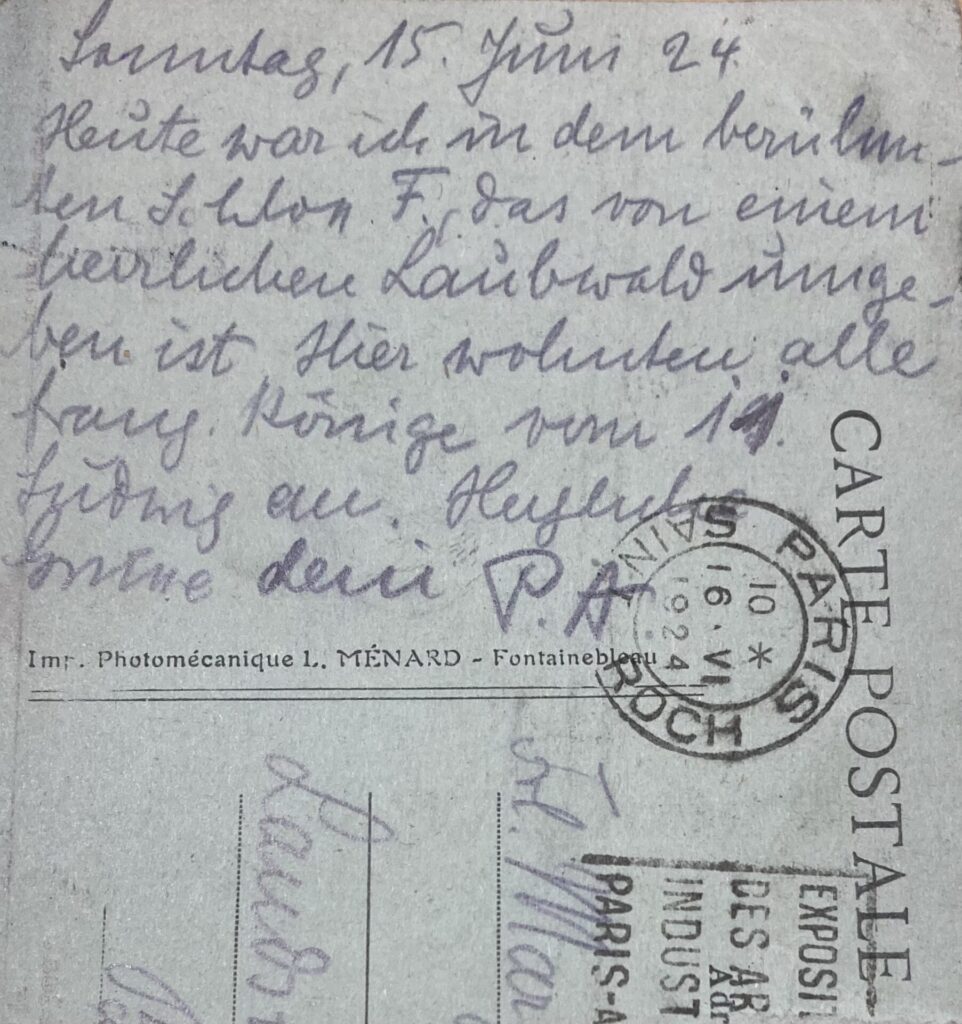 Sonntag, 15. Juni 24.
Heute war ich in dem berühm-
ten Schloss F., das von einem
herrlichen Laubwald umge-
ben ist. Hier wohnten alle
franz. Könige vom 11.
Ludwig an. Herzliche
Grüße dein P. A
Imp. Photomécanique L. MÉNARD - Fontainebleau
CARTE POSTALE
PARIS S
10 *
16 · VI
1924
ROCH
Frl. Mar
EXPOSI
DES AR
INDUST
PARIS-A